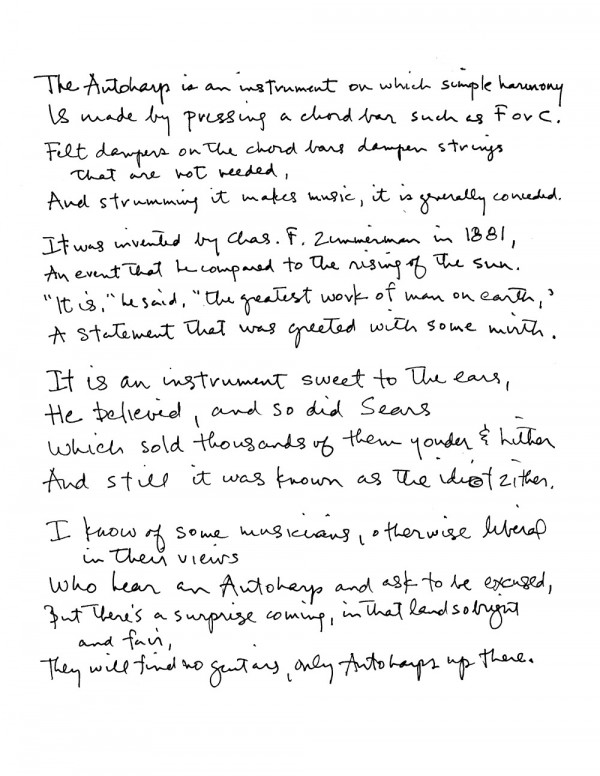 The Autoharp is an instrument on which simple harmony
Is made by pressing a chord bar such as F or C.
Felt dampers on the chord bars dampen strings
that are not needed,
And strumming it makes music, it is generally conceded.
It was invented by Chas. F. Zimmerman in 1881,
An event that he compared to the rising of the sun.
"It is," he said, "the greatest work of man on earth,"
A statement that was greeted with some mirth.
It is an instrument sweet to the ears,
He believed, and so did Sears
Which sold thousands of them yonder & hither
And still it was known as the idiot zither.
I know of some musicians, otherwise liberal
in their views
Who hear an Autoharp and ask to be excused,
But there's a surprise coming, in that land so bright
and fair,
They will find no guitars, only Autoharps up there.